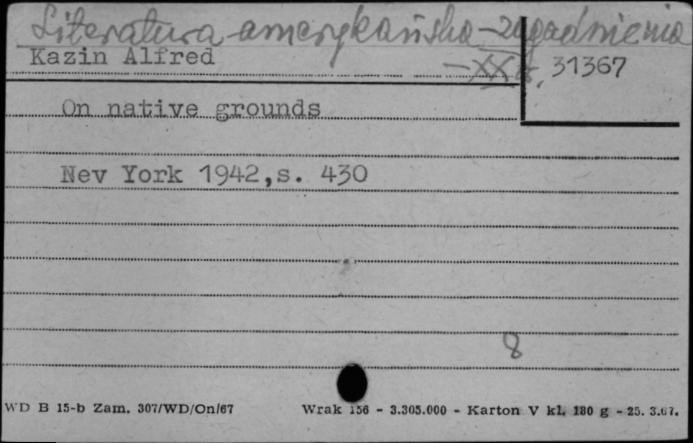 Literatura amerykańska - zagadnienia
- XX w.
Kazin Alfred
31367
On native grounds
Nev York 1942,s. 430
8
WD B 15-b Zam. 307/WD/On/67
Wrak 156 - 3.305.000 - Karton V kl. 180 g - 25. 3.67.